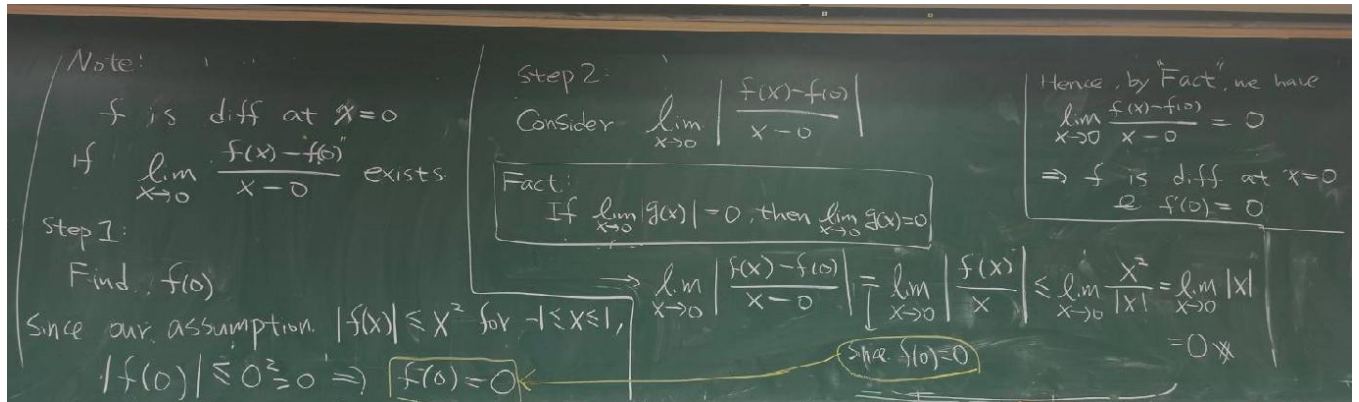 Note:
f is diff at x=0
if lim_{x→0} \frac{f(x)-f(0)}{x-0} exists.
Step 1:
Find f(0)
Since our assumption. |f(x)| ≤ x² for -1≤x≤1,
|f(0)| ≤ 0² = 0 ⇒ f(0)=0
Step 2:
Consider lim_{x→0} |\frac{f(x)-f(0)}{x-0}|
Fact:
If lim_{x→0} |g(x)| = 0, then lim_{x→0} g(x)=0
→ lim_{x→0} |\frac{f(x)-f(0)}{x-0}| = lim_{x→0} |\frac{f(x)}{x}| ≤ lim_{x→0} \frac{x²}{|x|} = lim_{x→0} |x|
=0
since f(0)=0
Hence, by "Fact", we have
lim_{x→0} \frac{f(x)-f(0)}{x-0} = 0
⇒ f is diff at x=0
& f'(0)=0